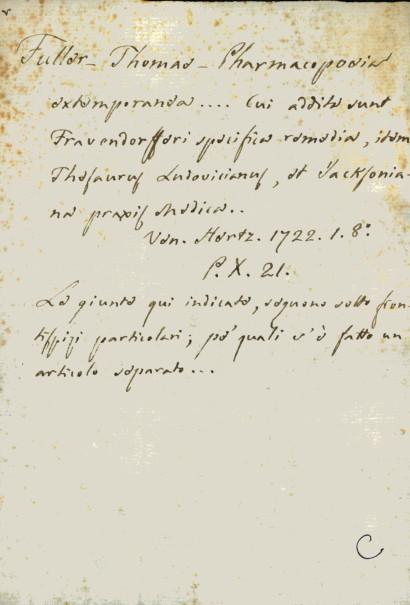 Fuller - Thomas - Pharmacopoeia
extemporanea.... Cui additae sunt
Fravendorfferi specifica remedia, item
Thesaurus Ludovicianus, et Jacksonia-
na praxis medica..
Ven. Hertz. 1722. 1. 8.°
P. X. 21.
Le giunte qui indicate, seguono sotto fron-
tispizi particolari; pe' quali s'è fatto un
articolo separato...
C